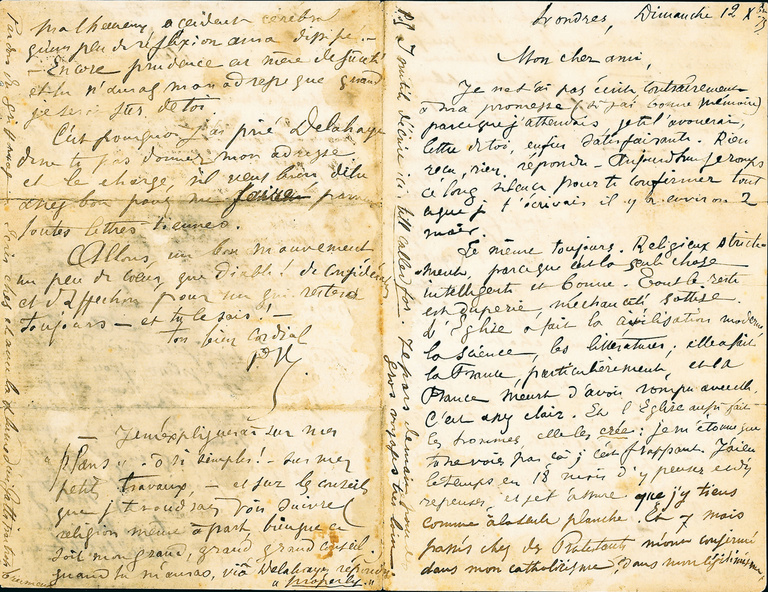 Londres, Dimanche 12 Xbre 75
Mon cher ami,
Je ne t'ai pas écrit, contrairement
à ma promesse (si j'ai bonne mémoire)
parce que j'attendais, je te l'avouerai,
lettre de toi, enfin satisfaisante. Rien
reçu, rien répondu – Aujourd'hui je romps
ce long silence pour te confirmer tout
ce que je t'écrivais il y a environ 2
mois.
Le même toujours. Religieux stricte-
ment, parce que c'est la seule chose
intelligente et bonne. Tout le reste
est duperie, méchanceté, sottise.
L'Église a fait la civilisation moderne,
la science, les littératures : elle a fait
la France, particulièrement, et la
France meurt d'avoir rompu avec elle.
C'est assez clair. Et l'Église aussi fait
les hommes, elle les crée : je m'étonne que
tu ne voies pas ça, c'est frappant. J'ai eu
le temps en 18 mois d'y penser et d'y
repenser, et je t'assure que j'y tiens
comme à la seule planche. Et 7 mois
passés chez des Protestants m'ont confirmé
dans mon catholicisme, dans mon légitimisme,
malheureux accident cérébral
– Encore prudence est mère de sûreté
et tu n'auras mon adresse que quand
je serai sûr de toi.
C'est pourquoi j'ai prié Delahaye
de ne te pas donner mon adresse
et le charge, s'il veut bien, d'être
assez bon pour me faire parv.
toutes lettres tiennes.
Allons, un bon mouvement,
un peu de cœur, que diable ! de considération
et d'affection pour un qui restera
toujours – et tu le sais ! –
ton bien cordial
P. V.
– Je m'expliquerai sur mes
"plans" – ô si simples ! – sur mes
petits travaux – et sur les conseils
que je te voudrais voir suivre,
religion même à part, bien que ce
soit mon grand, grand, grand conseil,
quand tu m'auras, viâ Delahaye, répondu
"properly".
P.S. Inutile d'écrire ici till called for. Je pars demain pour de
gros voyages très loin.